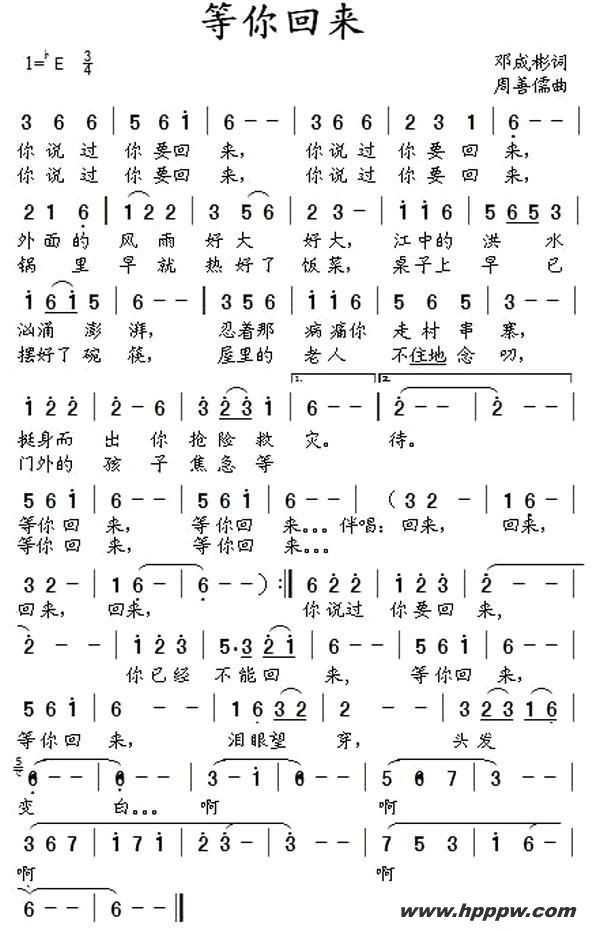 等你回来
1=♭E 3/4
邓成彬词
周善儒曲
3 6 6 | 5 6 i | 6 - - | 3 6 6 | 2 3 1 | 6̣ - - |
你说过 你要回 来， 你说过 你要回 来，
你说过 你要回 来， 你说过 你要回 来，
2 1 6̣ | 1 2 2 | 3 5 6 | 3 2 - | i i 6 | 5 6 5 3 |
外面的 风雨好大 好大，江中的洪水
锅里早就热好了饭菜，桌子上早已
i 6 i 5 | 6 - - | 3 5 6 | i i 6 | 5 6 5 | 3 - - |
汹涌澎湃，忍着那病痛你走村串寨，
摆好了碗筷，屋里的老人不住地念叨，
1. 2.
i 2̇ 2̇ | 2̇ - 6 | 3̇ 2̇ 3̇ i | 6 - - | 2̇ - - | 2̇ - - |
挺身而出你抢险救灾。 待。
门外的孩子焦急等
5 6 i | 6 - - | 5 6 i | 6 - - | （ 3 2 - | 1 6̣ - |
等你回来， 等你回来。。。伴唱：回来， 回来，
等你回来， 等你回来。。。
3 2 - | 1 6̣ - | 6̣ - - ）:‖ 6 2̇ 2̇ | i 2̇ 3̇ | 2̇ - - |
回来， 回来， 你说过 你要回来，
2̇ - - | i 2̇ 3̇ | 5·3 2̇ i | 6 - - | 5 6 i | 6 - - |
你已经 不能回 来， 等你回 来，
5 6 i | 6 - - | 1 6̣ 3 2 | 2 - - | 3 2 3 1 6̣ |
等你回 来， 泪眼望 穿， 头发
6̣ - - | 6̣ - - | 3 - i | 6 - - | 5 6 7 | 3 - - |
变 白。。。 啊 啊
3 6 7 | i 7 i | 2̇ 3̇ - | 3̇ - - | 7 5 3 | i 6 - |
啊 啊
6 - - | 6 - - ‖
www.hpppw.com